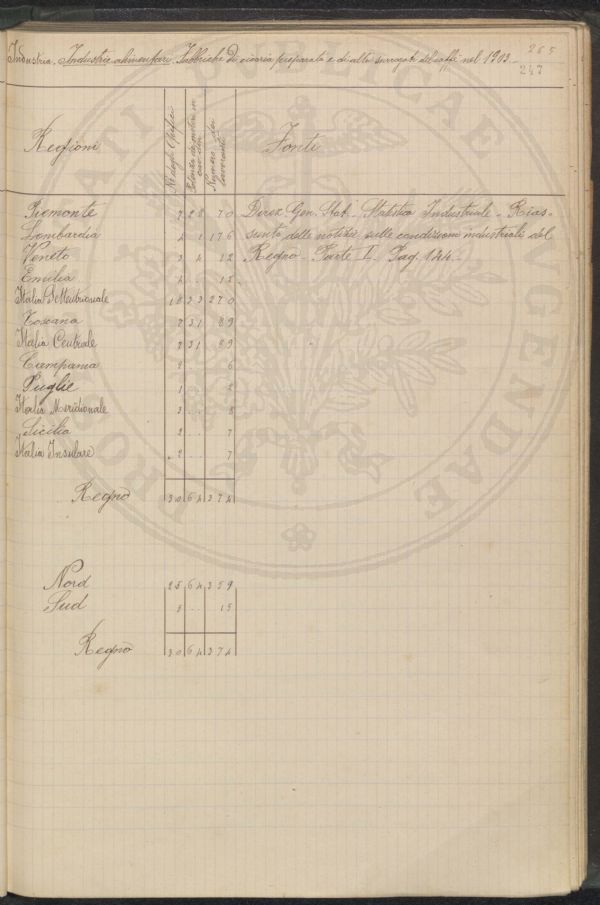 Industria. Industrie alimentari. Fabbriche di cicoria preparata e di altri surrogati del caffè nel 1903.
265
247
Regioni
N. degli Opifici
Potenza dei motori in cav. din.
Numero dei lavoranti
Fonti
Piemonte 7 28 70 Direz. Gen. Stat. Statistica Industriale - Rias-
Lombardia 4 1 176 sunto delle notizie sulle condizioni industriali del
Veneto 3 4 12 Regno - Parte I. Pag. 144.
Emilia 4 .. 12
Italia Settentrionale 18 33 270
Toscana 7 31 89
Italia Centrale 7 31 89
Campania 2 .. 6
Puglie 1 .. 2
Italia Meridionale 3 .. 8
Sicilia 2 .. 7
Italia Insulare 2 .. 7
Regno 30 64 374
Nord 25 64 359
Sud 5 .. 15
Regno 30 64 374